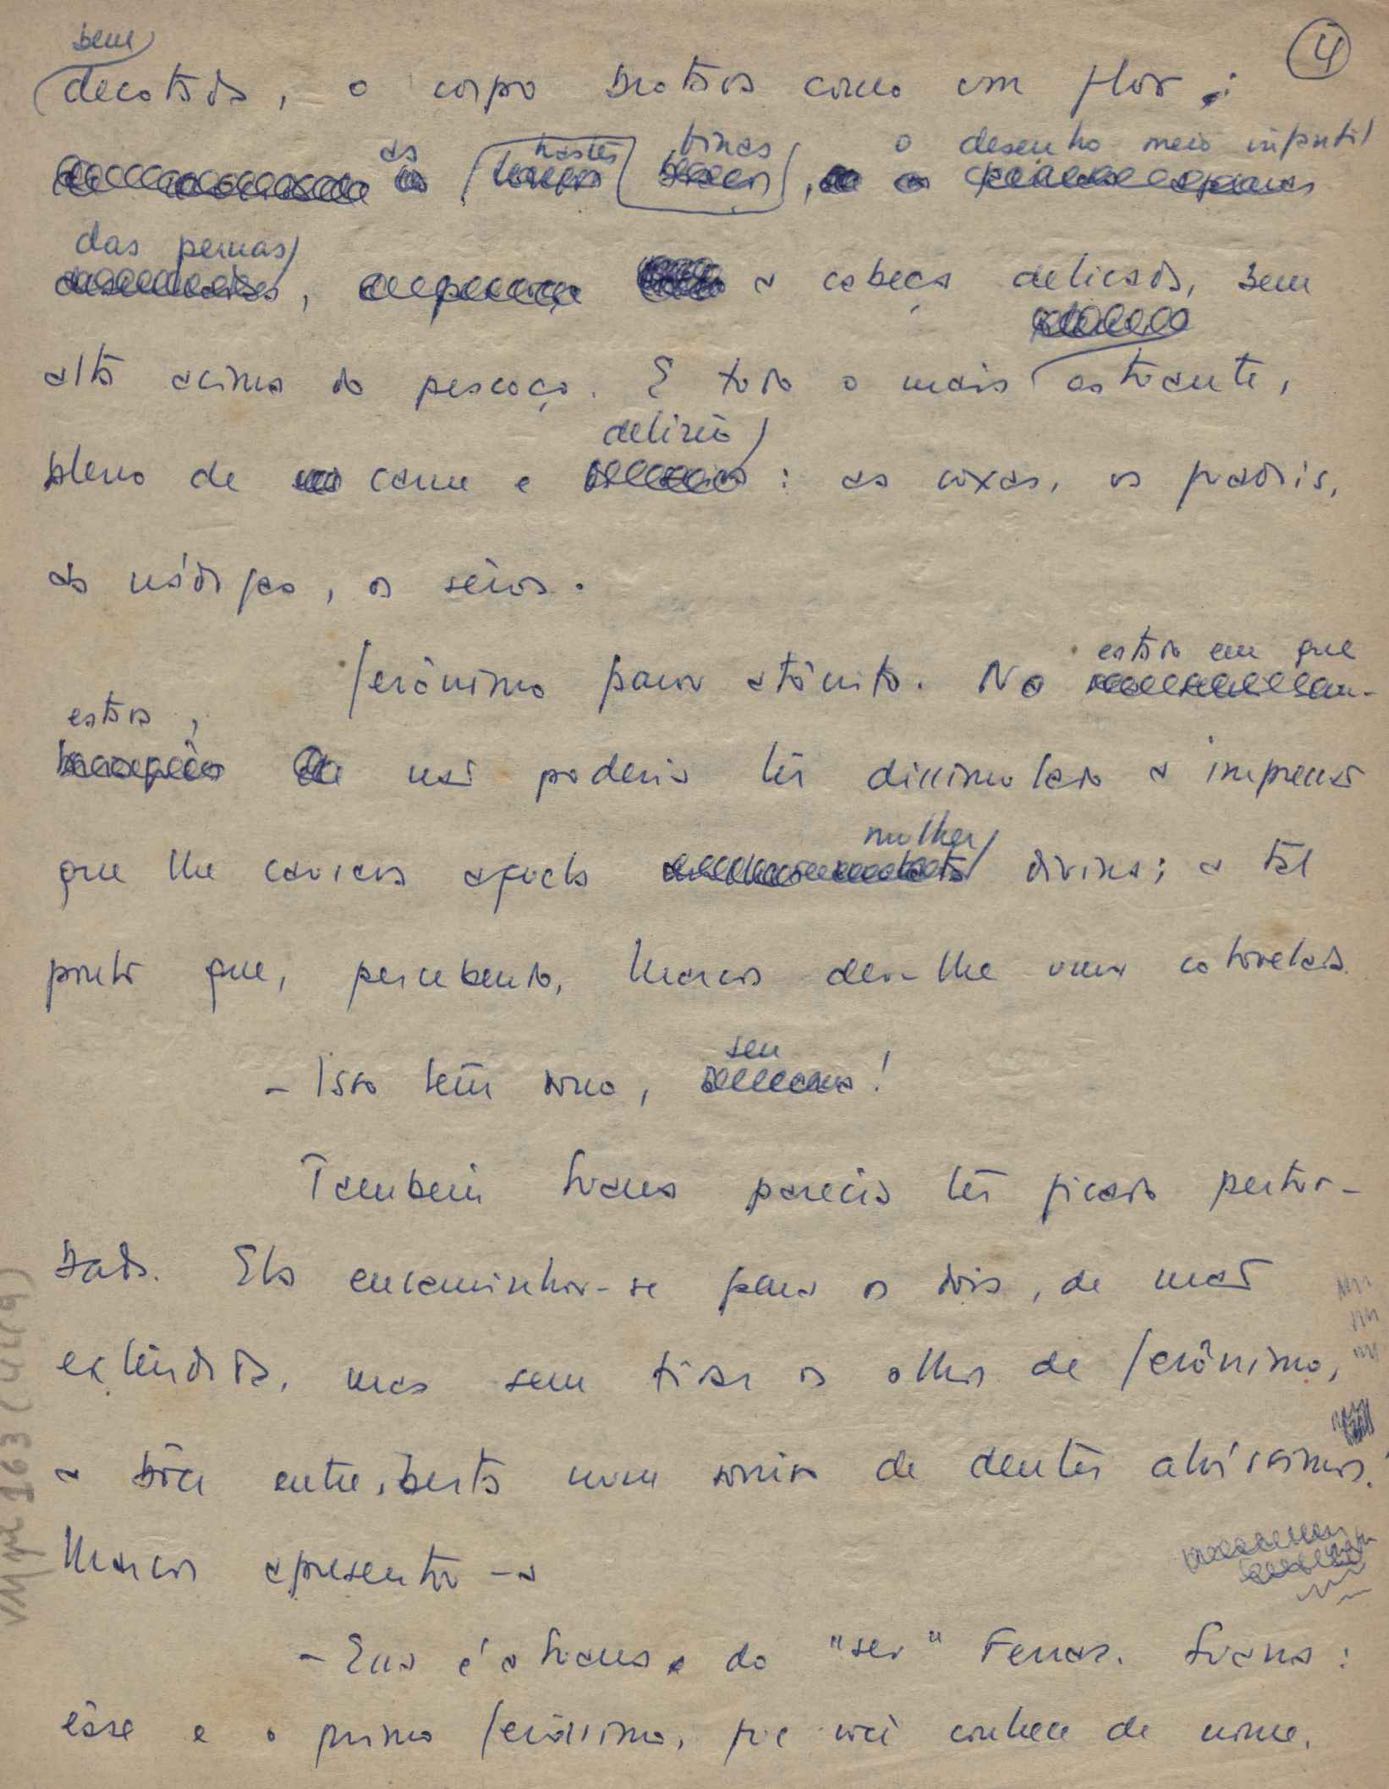 4
bem
decotada, o corpo brotava como um flor:
as hastes finas o desenho meio infantil
das pernas, a cabeça delicada, bem
alta acima do pescoço. E todo o mais ostuante,
pleno de carne e
delírio
: as coxas, os quadris,
as nádegas, os seios.
Jerônimo parou atônito. No
estado em que
estava,
não poderia ter dissimulado a impressão
que lhe causara aquela
mulher
divina; a tal
ponto que, percebendo, Marcos deu-lhe uma cotovelada.
- Isso tem dono, seu !
Também Luana parecia ter ficado pertur-
bada. Ela encaminhou-se para os dois, de mão
extendida, mas sem tirar os olhos de Jerônimo,
a bôca entreaberta num sorriso de dentes alvíssimos.
Marcos apresentou-a
- Essa é a Luana, do "seu" Ferraz. Luana:
êsse e o primo Jerônimo, que você conhece de nome.